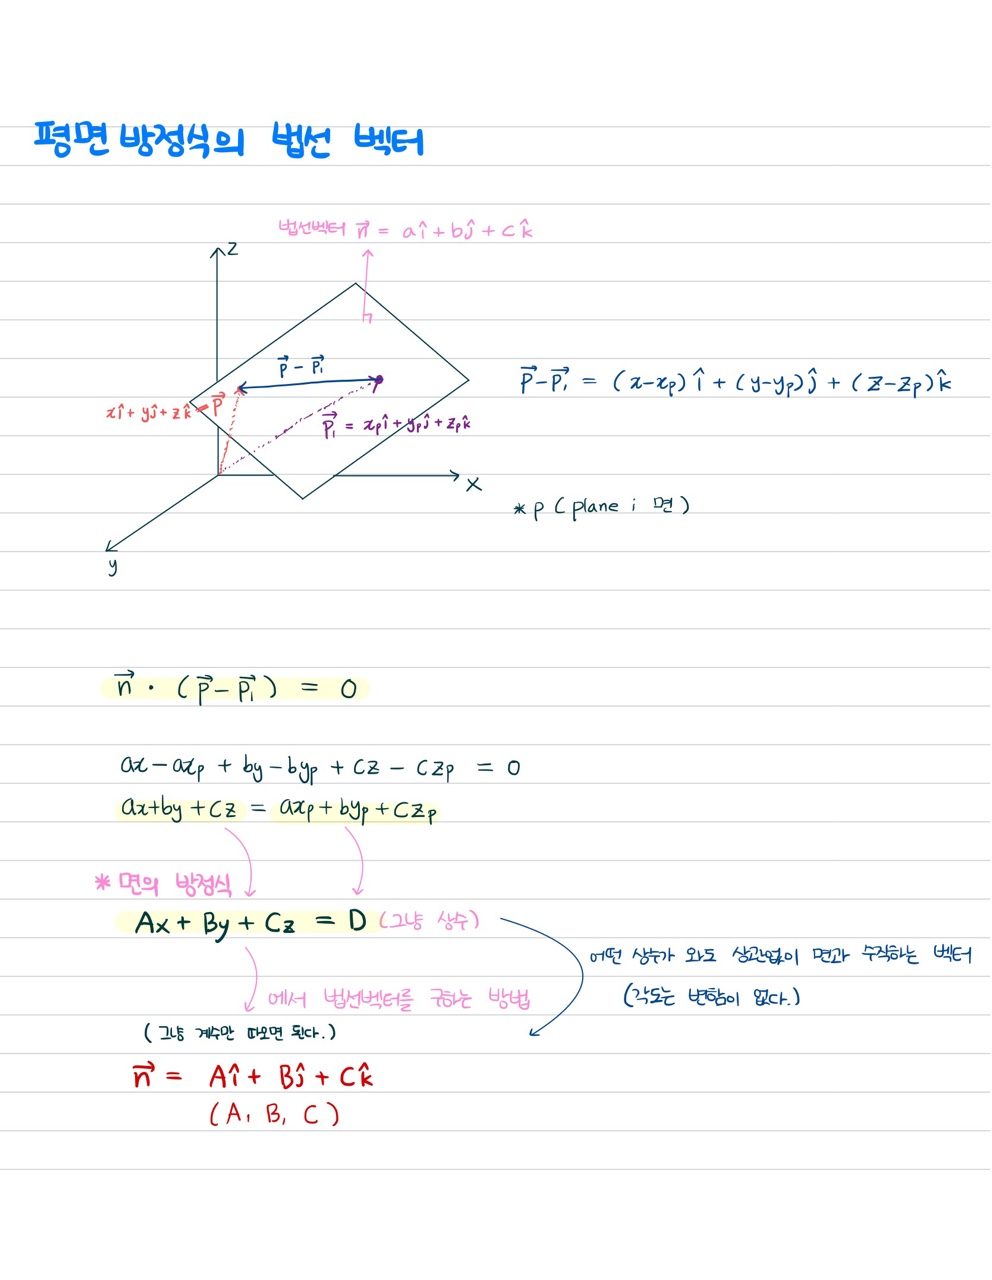 평면 방정식의 법선 벡터
법선벡터 n⃗ = aî + bĵ + ck̂
z
p⃗ - p⃗₁
p⃗ - p⃗₁ = (x-xₚ)î + (y-yₚ)ĵ + (z-zₚ)k̂
xî + yĵ + zk̂ = p⃗
p⃗₁ = xₚî + yₚĵ + zₚk̂
x
* p (plane ; 면)
y
n⃗ · (p⃗ - p⃗₁) = 0
ax - axₚ + by - byₚ + cz - czₚ = 0
ax + by + cz = axₚ + byₚ + czₚ
* 면의 방정식
Ax + By + Cz = D (그냥 상수)
어떤 상수가 와도 상관없이 면과 수직하는 벡터
(각도는 변함이 없다.)
에서 법선벡터를 구하는 방법
(그냥 계수만 따오면 된다.)
n⃗ = Aî + Bĵ + Ck̂
(A, B, C)